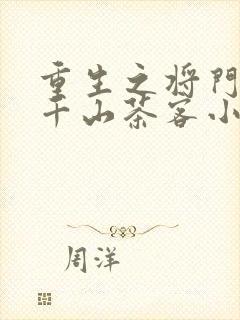 重生之将门
千山茶客小
周洋